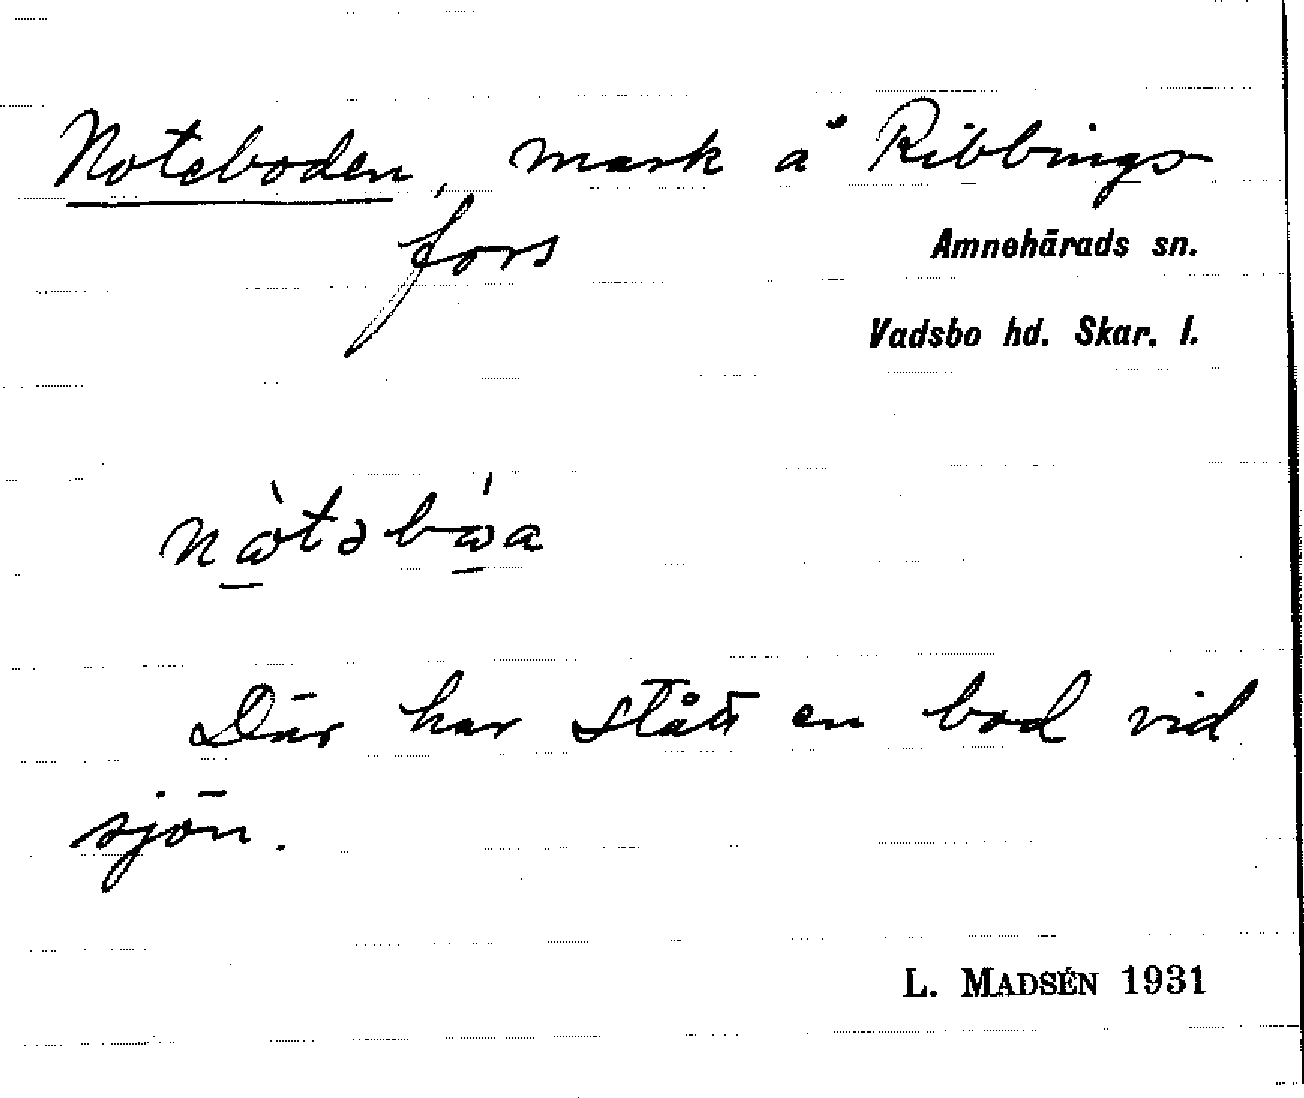 Noteboden, mark å Ribbings
fors
Amnehärads sn.
Vadsbo hd. Skar. l.
nɷ̀təbɷ́a
Där har stått en bod vid
sjön.
L. MADSÉN 1931